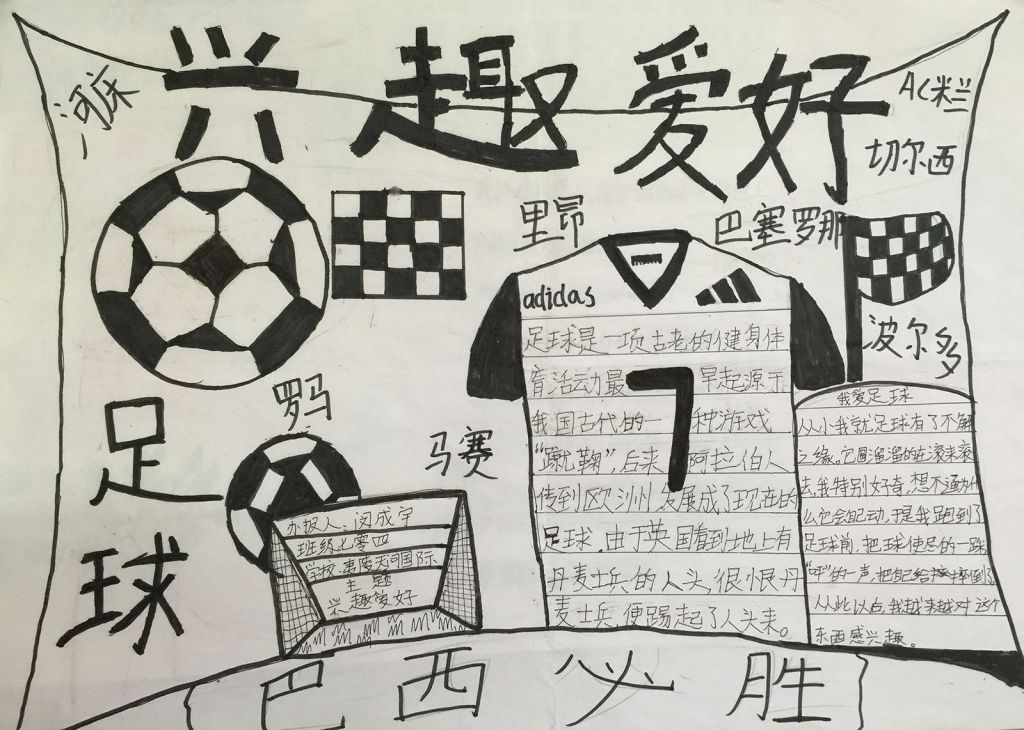 兴趣爱好
河床
AC米兰
切尔西
里昂
巴塞罗那
波尔多
罗马
马赛
足球
adidas
足球是一项古老的健身体
育活动最 早起源示
我国古代的一 种游戏
“蹴鞠”,后来 阿拉伯人
传到欧洲州 发展成了现在的
足球.由于英国看到地上有
丹麦士兵的人头,很恨丹
麦士兵,便踢起了人头来。
7
我爱足球
从小我就足球有了不解
之缘。它圆溜溜的在滚来滚
去,我特别好奇,想不通为什
么它会配动,于是我跑到了
足球前,把球使尽的一踩
“呯”的一声,把自己给摔倒了
从此以后,我越来越对这个
东西感兴趣。
办报人:闵成宇
班级七零四
学校夷陵天问国际
主题
兴趣爱好
巴西必胜